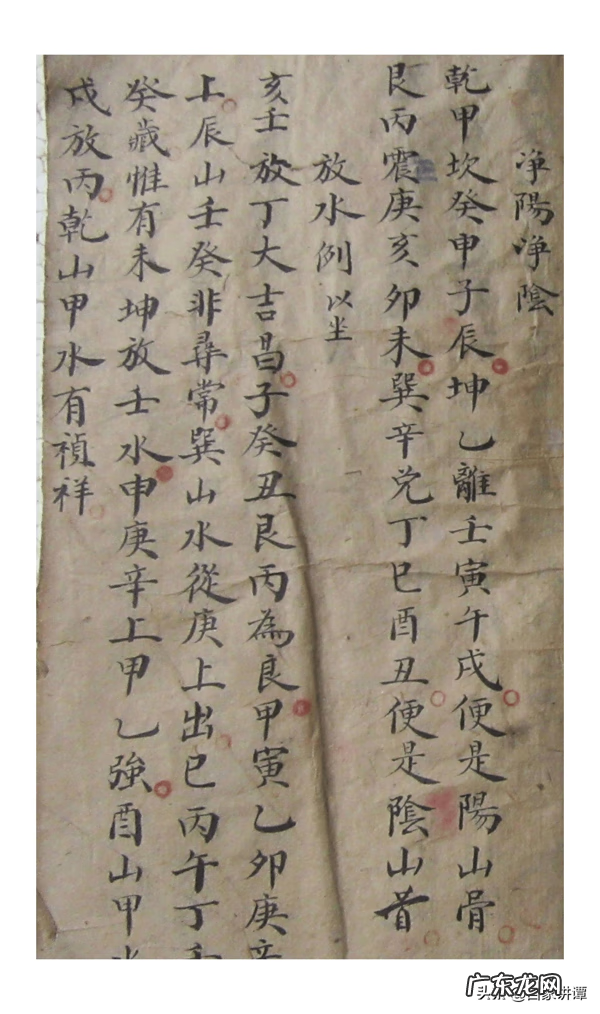 净陽净陰
乾甲坎癸申子辰坤乙離壬寅午戌便是陽山骨
艮丙震庚亥卯未巽辛兌丁巳酉丑便是陰山首
放水例 以坐
亥壬放丁大吉昌子癸丑艮丙為良甲寅乙卯庚辛
上辰山壬癸非尋常巽山水從庚上出巳丙午丁壬
癸藏惟有未坤放壬水申庚辛上甲乙強酉山甲水
戌放丙乾山甲水有禎祥
广东龙网
头条 @百家讲谭